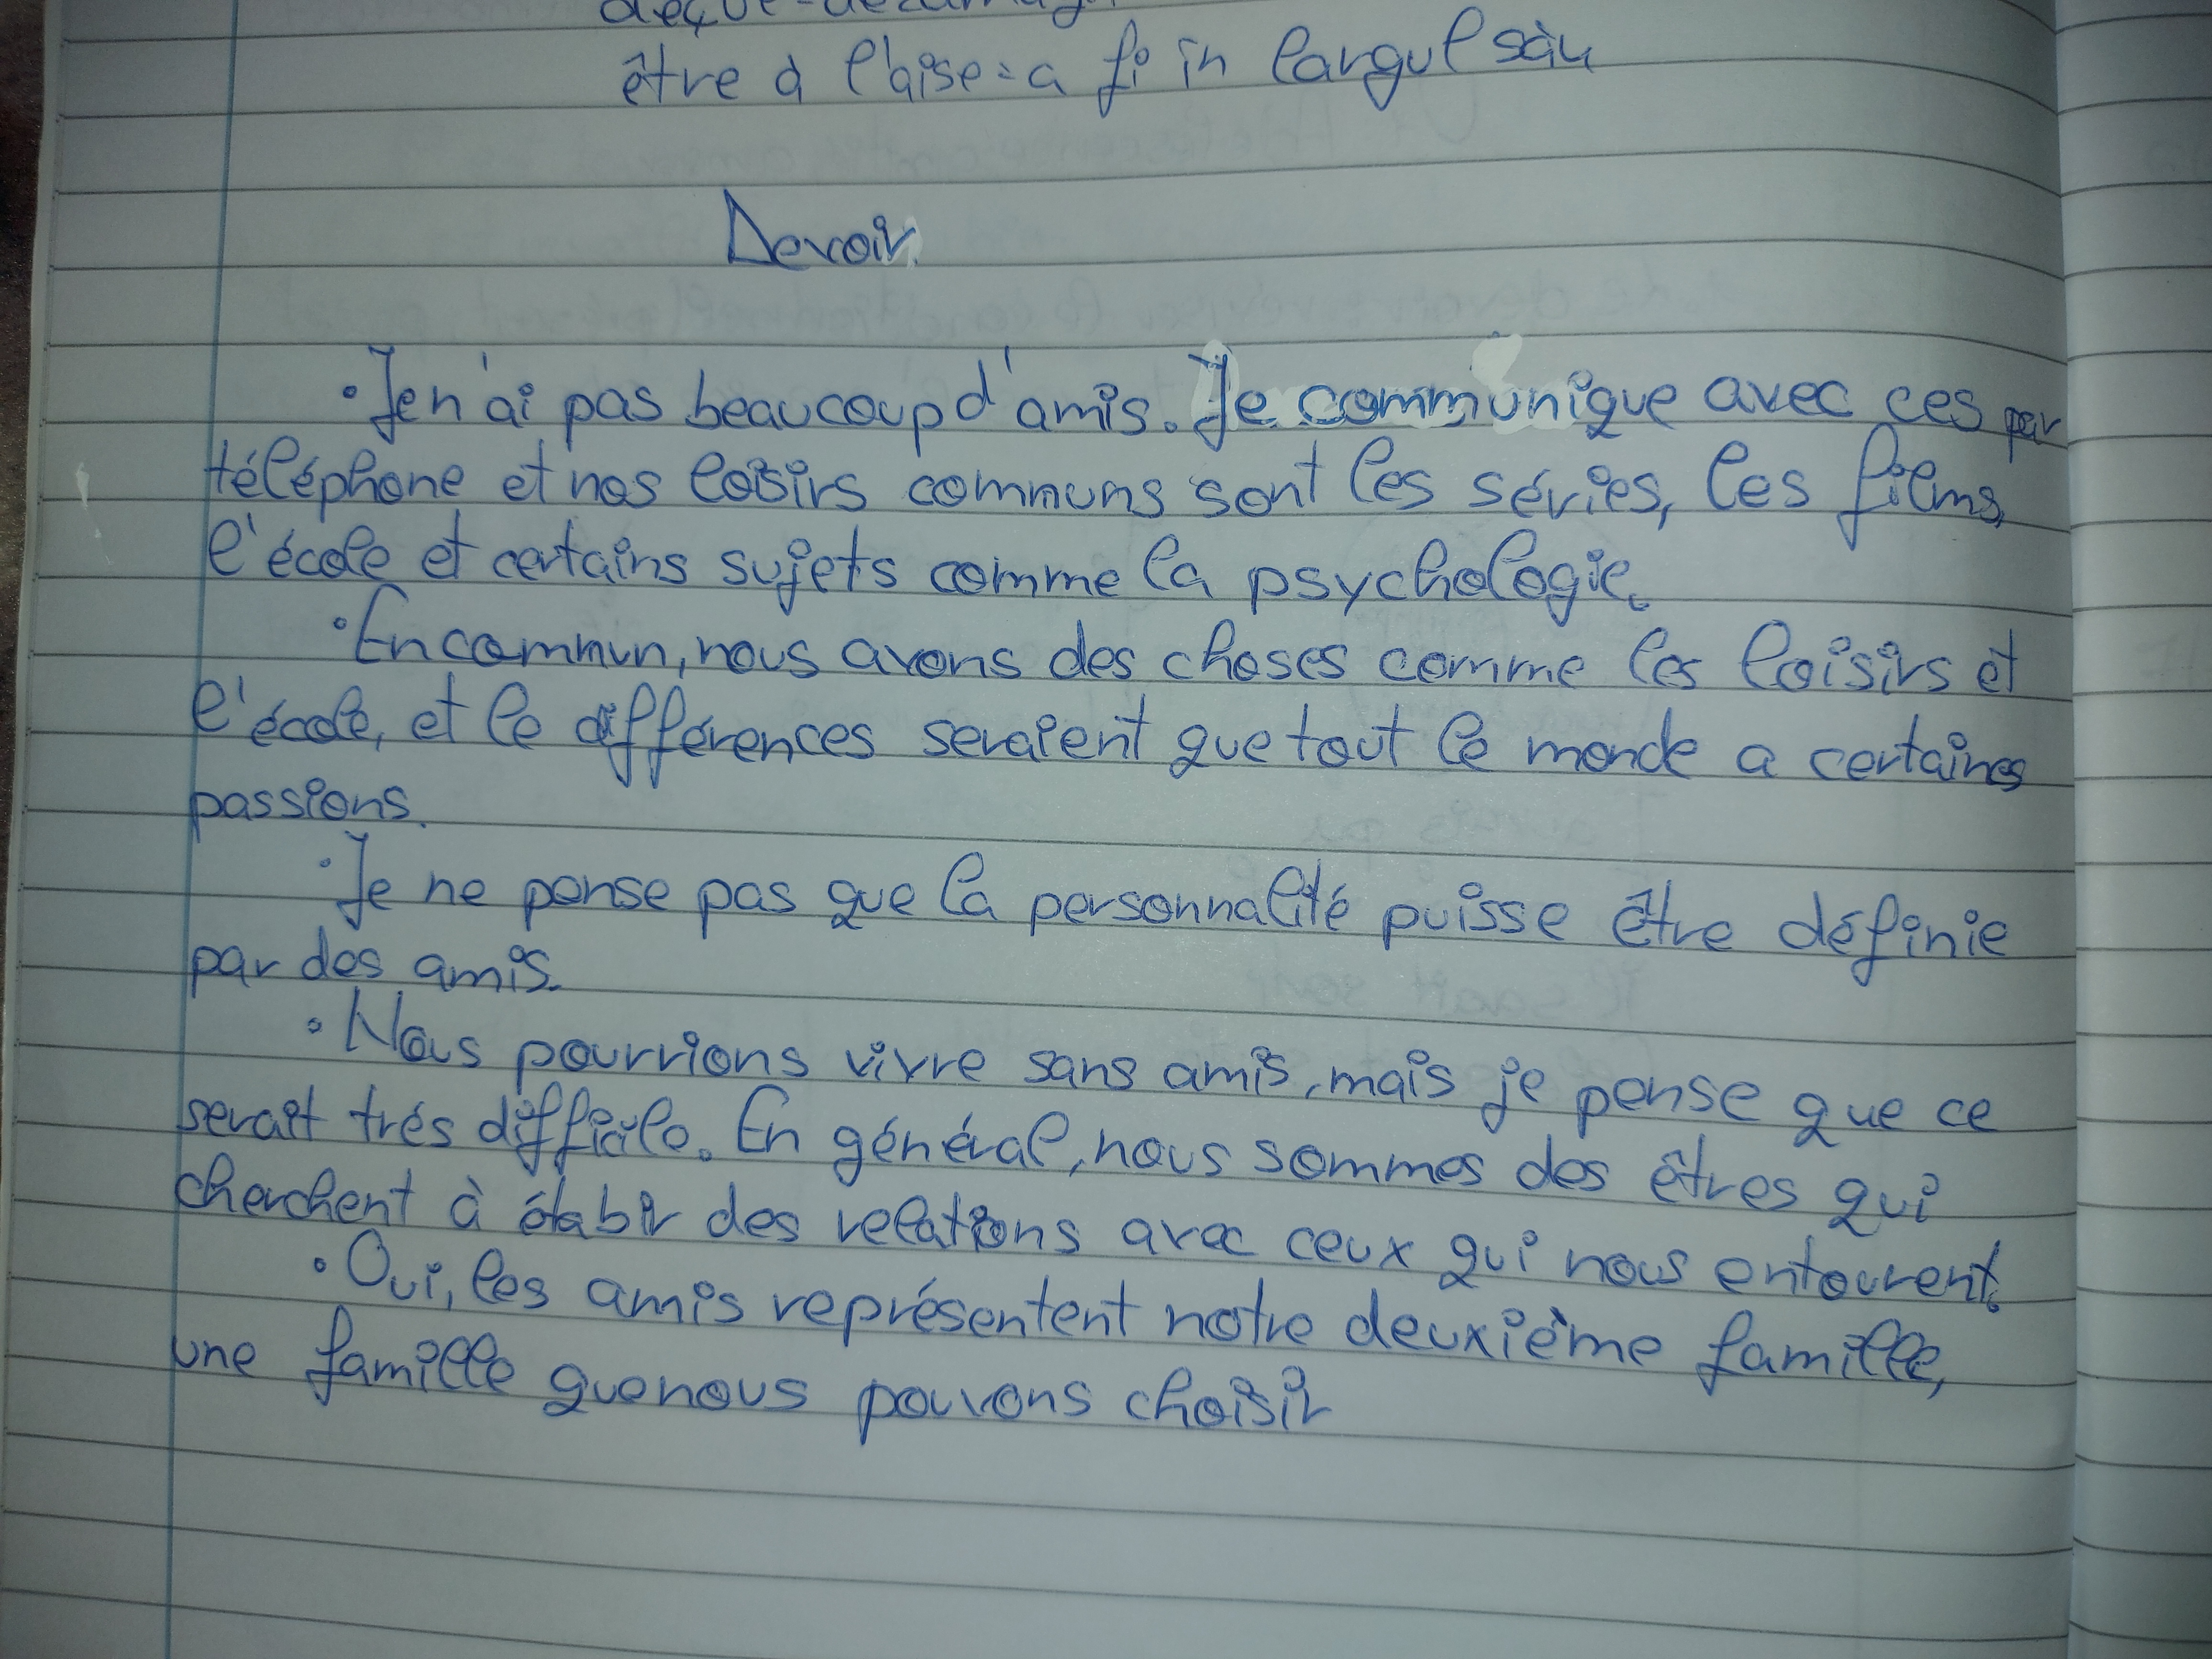 être à l'aise = a fi in largul său
Devoir
• Je n'ai pas beaucoup d'amis. Je communique avec ces par
téléphone et nos loisirs communs sont les séries, les films,
l'école et certains sujets comme la psychologie.
• En commun, nous avons des choses comme les loisirs et
l'école, et le différences seraient que tout le monde a certaines
passions.
• Je ne pense pas que la personnalité puisse être définie
par des amis.
• Nous pourrions vivre sans amis, mais je pense que ce
serait trés difficile. En général, nous sommes des êtres qui
cherchent à établir des relations avec ceux qui nous entourent.
• Oui, les amis représentent notre deuxième famille,
une famille que nous pouvons choisir